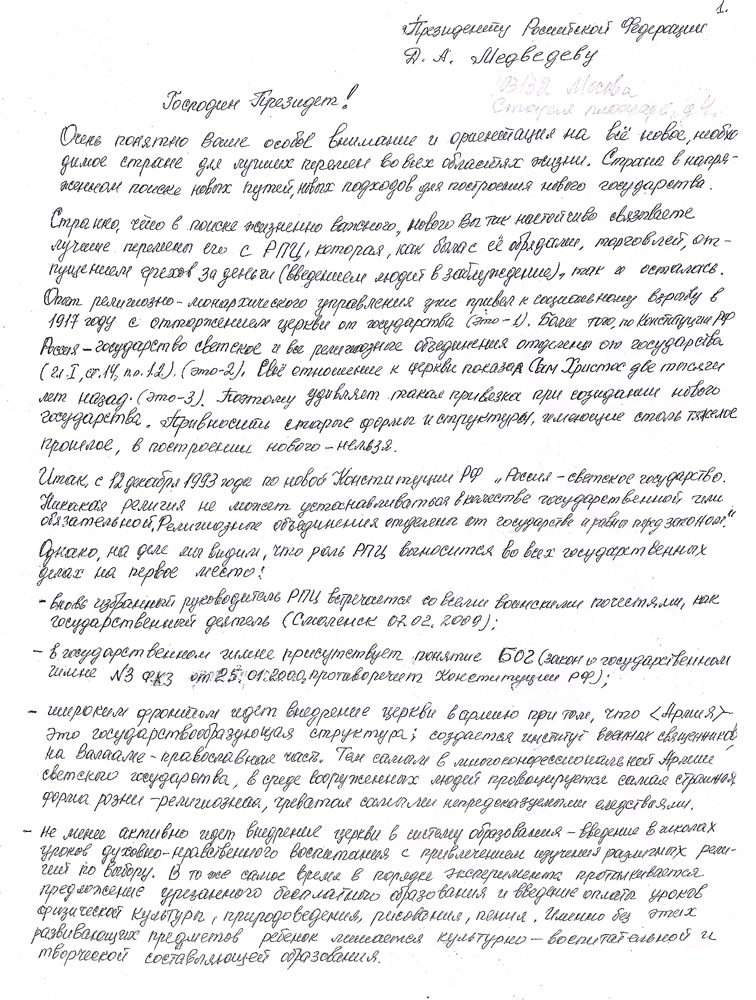 1.
Президенту Российской Федерации
Д. А. Медведеву
103132 Москва
Старая площадь, д.4.
Господин Президет!
Очень понятно Ваше особое внимание и ориентация на всё новое, необхо-
димое стране для лучших перемен во всех областях жизни. Страна в напря-
женном поиске новых путей, новых подходов для построения нового государства.
Странно, что в поиске жизненно важного, нового Вы так настойчиво связываете
лучшие перемены его с РПЦ, которая, как была с её обрядами, торговлей, от-
пущением грехов за деньги (введением людей в заблуждение), так и осталась.
Опыт религиозно-монархического управления уже привел к социальному взрыву в
1917 году с отторжением церкви от государства (это-1). Более того, по Конституции РФ
Россия - государство светское и все религиозные объединения отделены от государства
(гл. I, ст. 14, п.п. 1.2). (это-2). Своё отношение к церкви показал Сам Христос две тысячи
лет назад. (это-3). Поэтому удивляет такая привязка при созидании нового
государства. Привносить старые формы и структуры, имеющие столь тяжелое
прошлое, в построении нового - нельзя.
Итак, с 12 декабря 1993 года по новой Конституции РФ „Россия - светское государство.
Никакая религия не может устанавливаться в качестве государственной или
обязательной. Религиозные объединения отделены от государства и равны перед законом."
Однако, на деле мы видим, что роль РПЦ выносится во всех государственных
делах на первое место!
- вновь избранный руководитель РПЦ встречается со всеми воинскими почестями, как
государственный деятель (Смоленск 02.02.2009);
- в государственном гимне присутствует понятие БОГ (закон о государственном
гимне №3 ФКЗ от 25.01.2000, противоречит Конституции РФ);
- широким фронтом идет внедрение церкви в армию при том, что <Армия> -
это государствообразующая структура; создается институт военных священников,
на Валааме - православная часть. Тем самым в многоконфессиональной Армии
светского государства, в среде вооруженных людей провоцируется самая страшная
форма розни - религиозная, чреватая самыми непредсказуемыми следствиями.
- не менее активно идет внедрение церкви в систему образования - введение в школах
уроков духовно-нравственного воспитания с привлечением изучения различных рели-
гий по выбору. В то же самое время в порядке эксперимента проталкивается
предложение урезанного бесплатного образования и введение оплаты уроков
физической культуры, природоведения, рисования, пения. Именно без этих
развивающих предметов ребенок лишается культурно - воспитательной и
творческой составляющей образования.